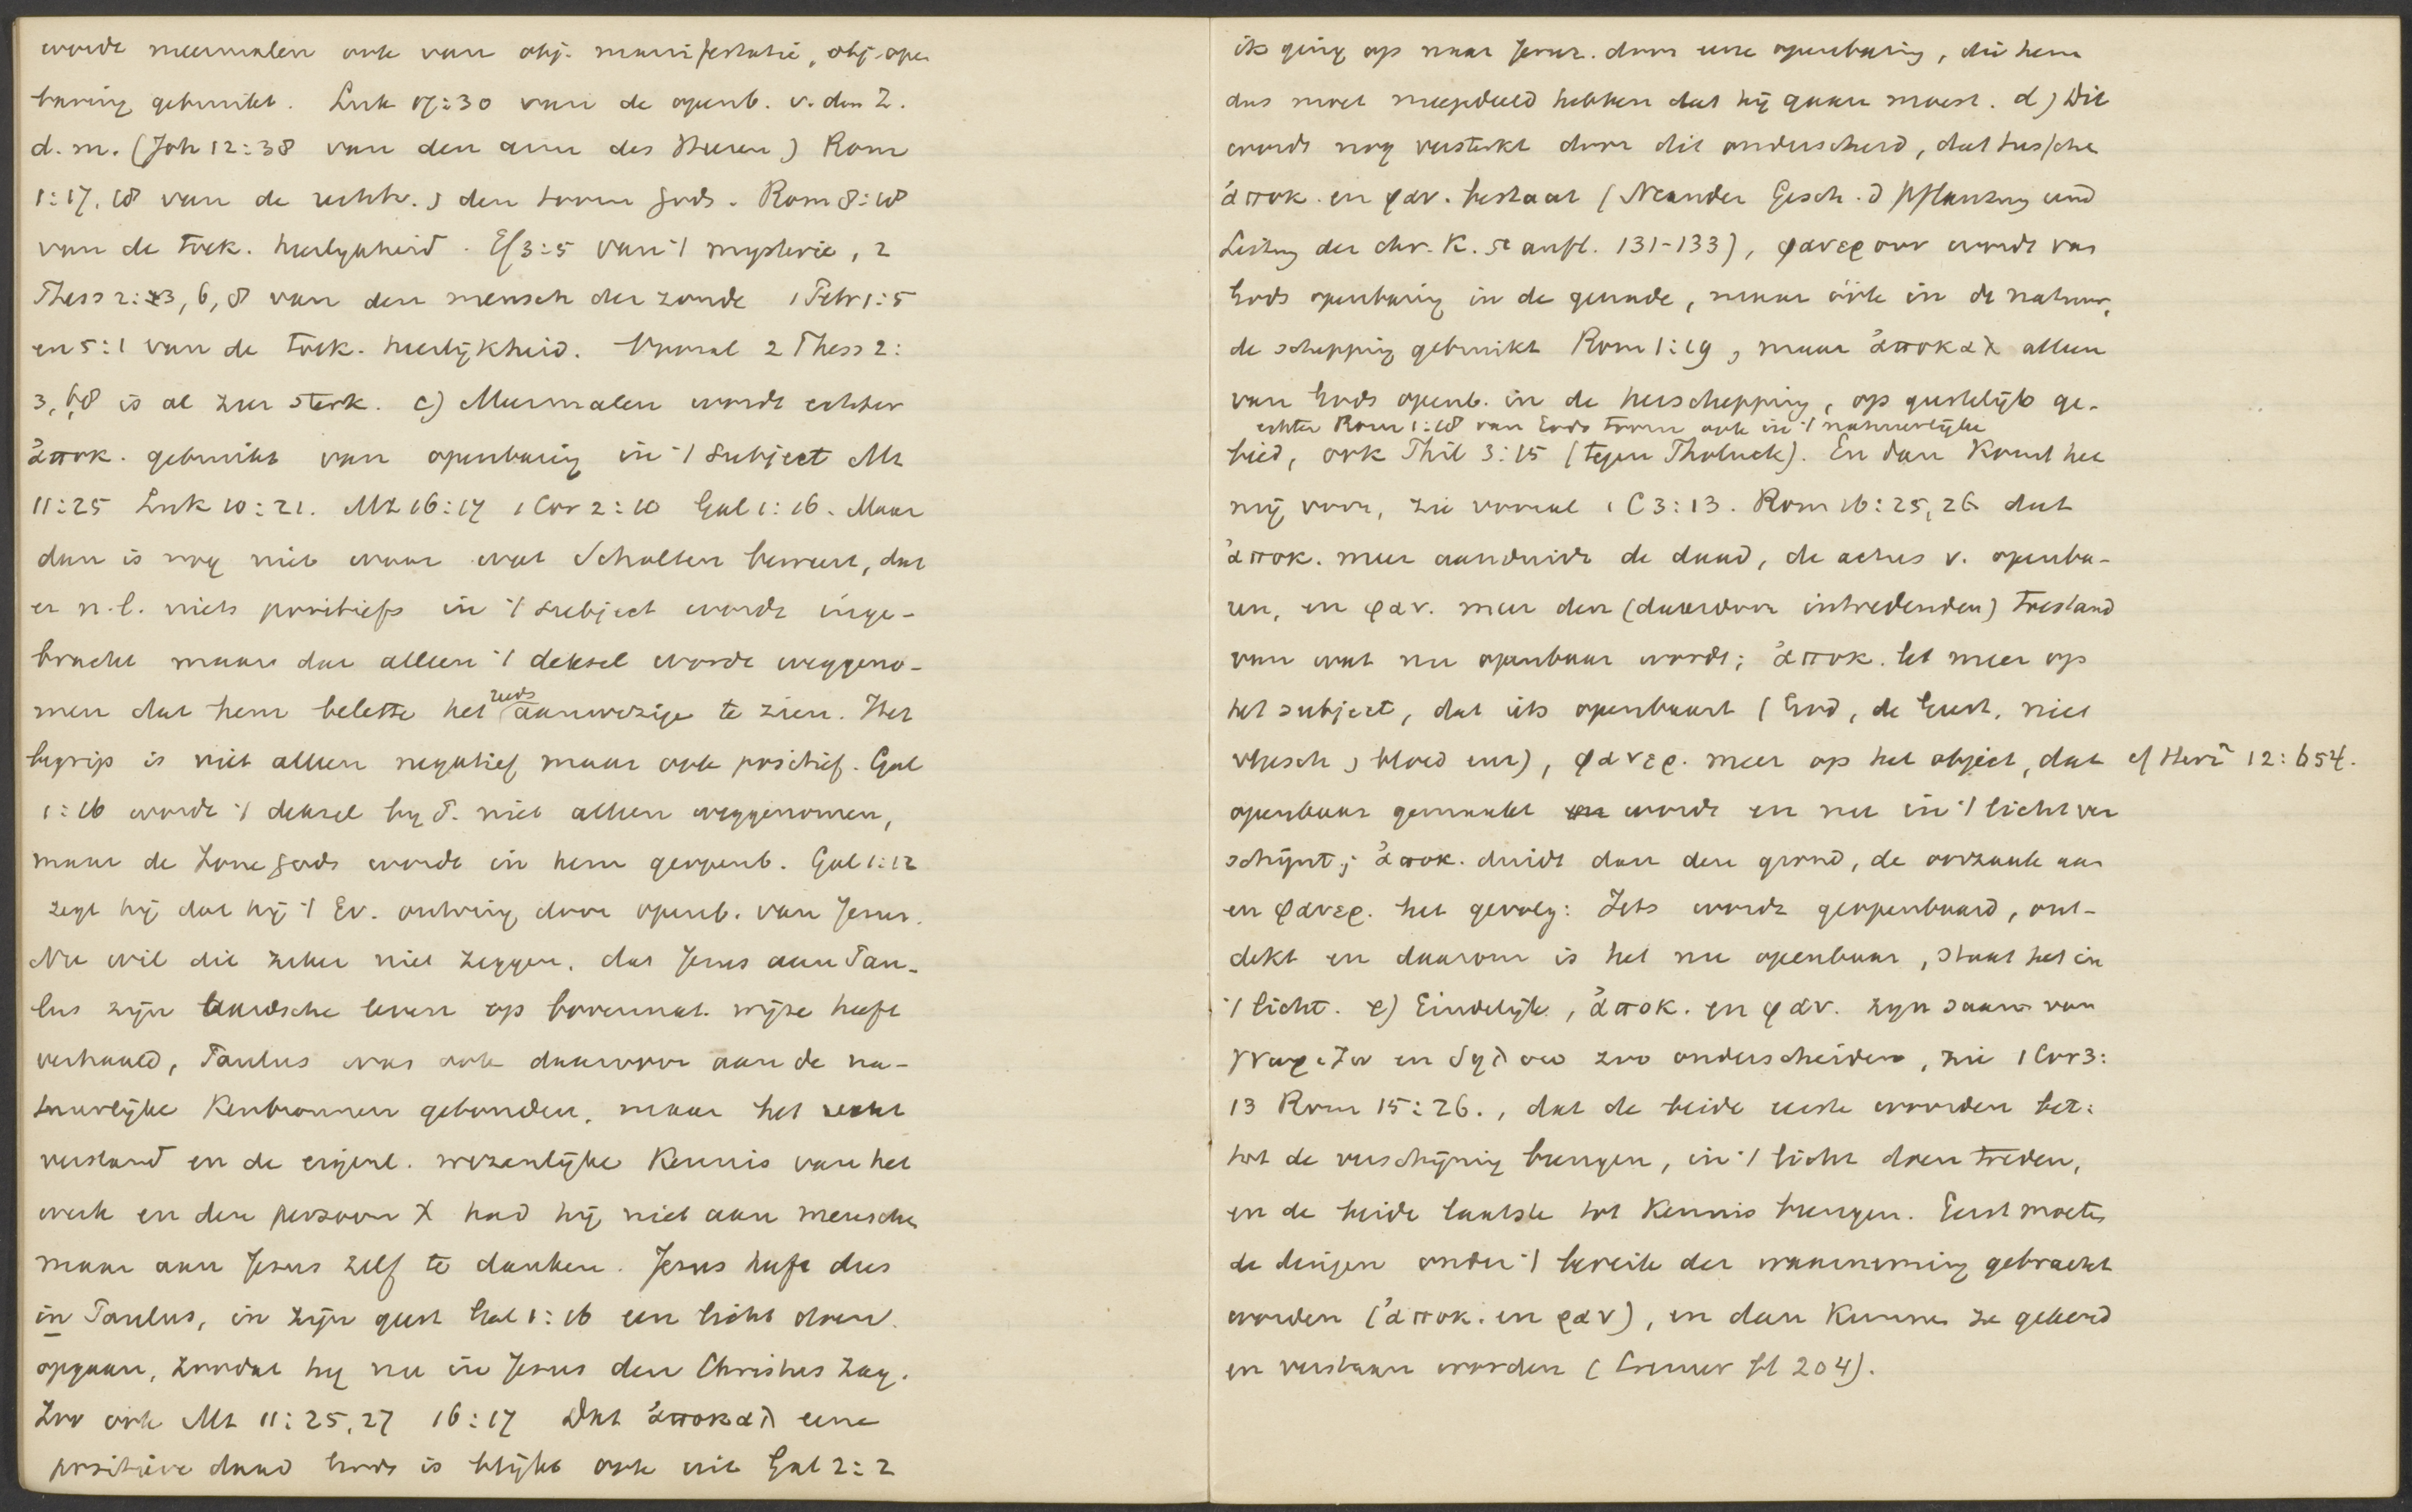 wordt meermalen ook van obj. manifestatie, obj. open
baring gebruikt. Luk 17:30 van de openb. v. den Z.
d. m. (Joh 12:38 van den arm des Heeren) Rom
1:17, 18 van de rechtv. & den toorn Gods. Rom 8:18
van de toek. heerlijkheid. Ef 3:5 van 't mysterie, 2
Thess 2:3, 6, 8 van den mensch der zonde 1 Petr 1:5
en 5:1 van de toek. heerlijkheid. Vooral 2 Thess 2:
3, 6, 8 is al zeer sterk. c) Meermalen wordt echter
ἀποκ. gebruikt van openbaring in 't subject Mt
11:25 Luk 10:21. Mt 16:17 1 Cor 2:10 Gal 1:16. Maar
dan is nog niet waar wat Scholten beweert, dat
er n.l. niets positiefs in 't subject wordt inge-
bracht maar dat alleen 't deksel wordt weggeno-
men dat hem belette het reeds aanwezige te zien. Het
begrip is niet alleen negatief maar ook positief. Gal
1:16 wordt 't deksel by P. niet alleen weggenomen,
maar de Zone Gods wordt in hem geopenb. Gal 1:12
zegt hij dat hij 't Ev. ontving door openb. van Jezus.
Nu wil dit zeker niet zeggen, dat Jezus aan Pau-
lus zijn aardsche leven op bovennat. wijze heeft
verhaald, Paulus was ook daarvoor aan de na-
tuurlijke kenbronnen gebonden, maar het recht
verstand en de eigenl. wezenlijke kennis van het
werk en den persoon X had hij niet aan menschen
maar aan Jezus zelf te danken. Jezus heeft dus
in Paulus, in zijn geest Gal 1:16 een licht doen
opgaan, zoodat hij nu in Jezus den Christus zag.
Zoo ook Mt 11:25, 27 16:17 Dat ἀποκαλ eene
positieve daad Gods is blijkt ook uit Gal 2:2
ik ging op naar Jeruz. door eene openbaring, die hem
dus moet meegedeeld hebben dat hij gaan moest. d) Dit
wordt nog versterkt door dit onderscheid, dat tusschen
ἀποκ. en φαν. bestaat (Neander Gesch. d Pflanzung und
Leitung der chr. K. 5e aufl. 131-133), φανεροῦν wordt van
Gods openbaring in de genade, maar óók in de natuur,
de schepping gebruikt Rom 1:19, maar ἀποκαλ alleen
van Gods openb. in de herschepping, op geestelijk ge-
echter Rom 1:18 van Gods toorn ook in 't natuurlijke
bied, ook Phil 3:15 (tegen Tholuck). En dan komt het
mij voor, zie vooral 1 C 3:13. Rom 16:25, 26 dat
ἀποκ. meer aanduidt de daad, de actus v. openba-
ren, en φαν. meer den (daardoor intredenden) toestand
van wat nu openbaar wordt; ἀποκ. let meer op
het subject, dat iets openbaart (God, de Geest, niet
vleesch & bloed enz), φανερ. meer op het object, dat cf Herz² 12:654.
openbaar gemaakt wordt en nu in 't licht ver
schijnt; ἀποκ. duidt dan den grond, de oorzaak aan
en φανερ. het gevolg: Iets wordt geopenbaard, ont-
dekt en daarom is het nu openbaar, staat het in
't licht. e) Eindelijk, ἀποκ. en φαν. zijn saam van
γνωριζω en δηλοω zoo onderscheiden, zie 1 Cor 3:
13 Rom 15:26., dat de beide eerste woorden bet:
tot de verschijning brengen, in 't licht doen treden,
en de beide laatste tot kennis brengen. Eerst moeten
de dingen onder 't bereik der waarneming gebracht
worden (ἀποκ. en φαν), en dan kunnen ze gekend
en verstaan worden (Cremer bl 204).